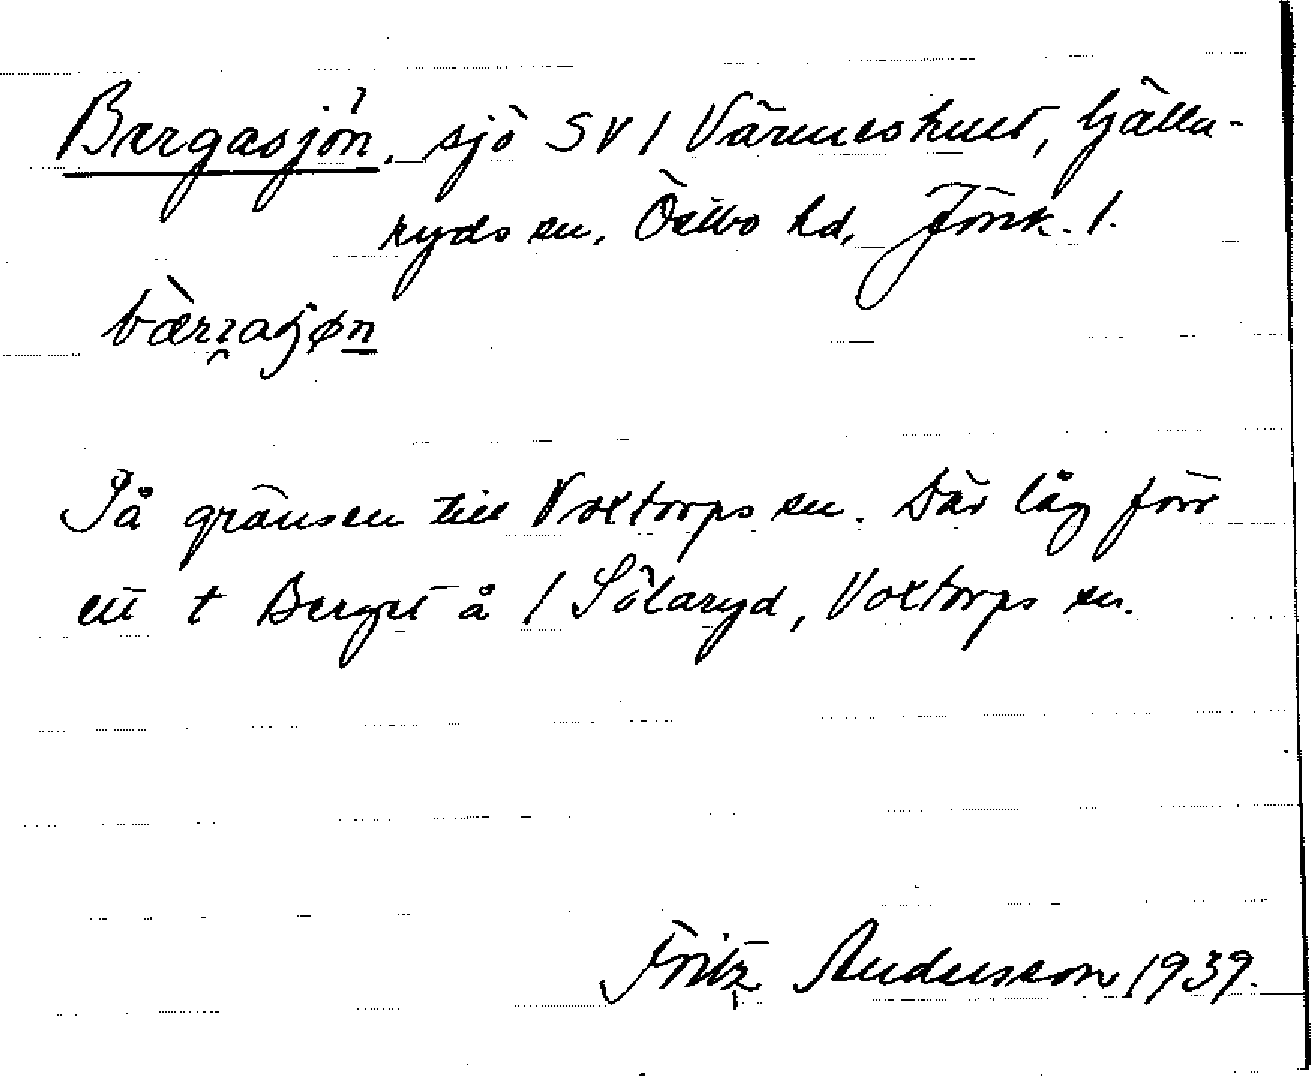 Bergasjön, sjö SV / Värmeshult, Gälla-
ryds sn, Östbo hd, Jönk. l.
På gränsen till Voxtorps sn. Där låg förr
ett t Berget å / Sölaryd, Voxtorps sn.
Fritz Andersson 1939.